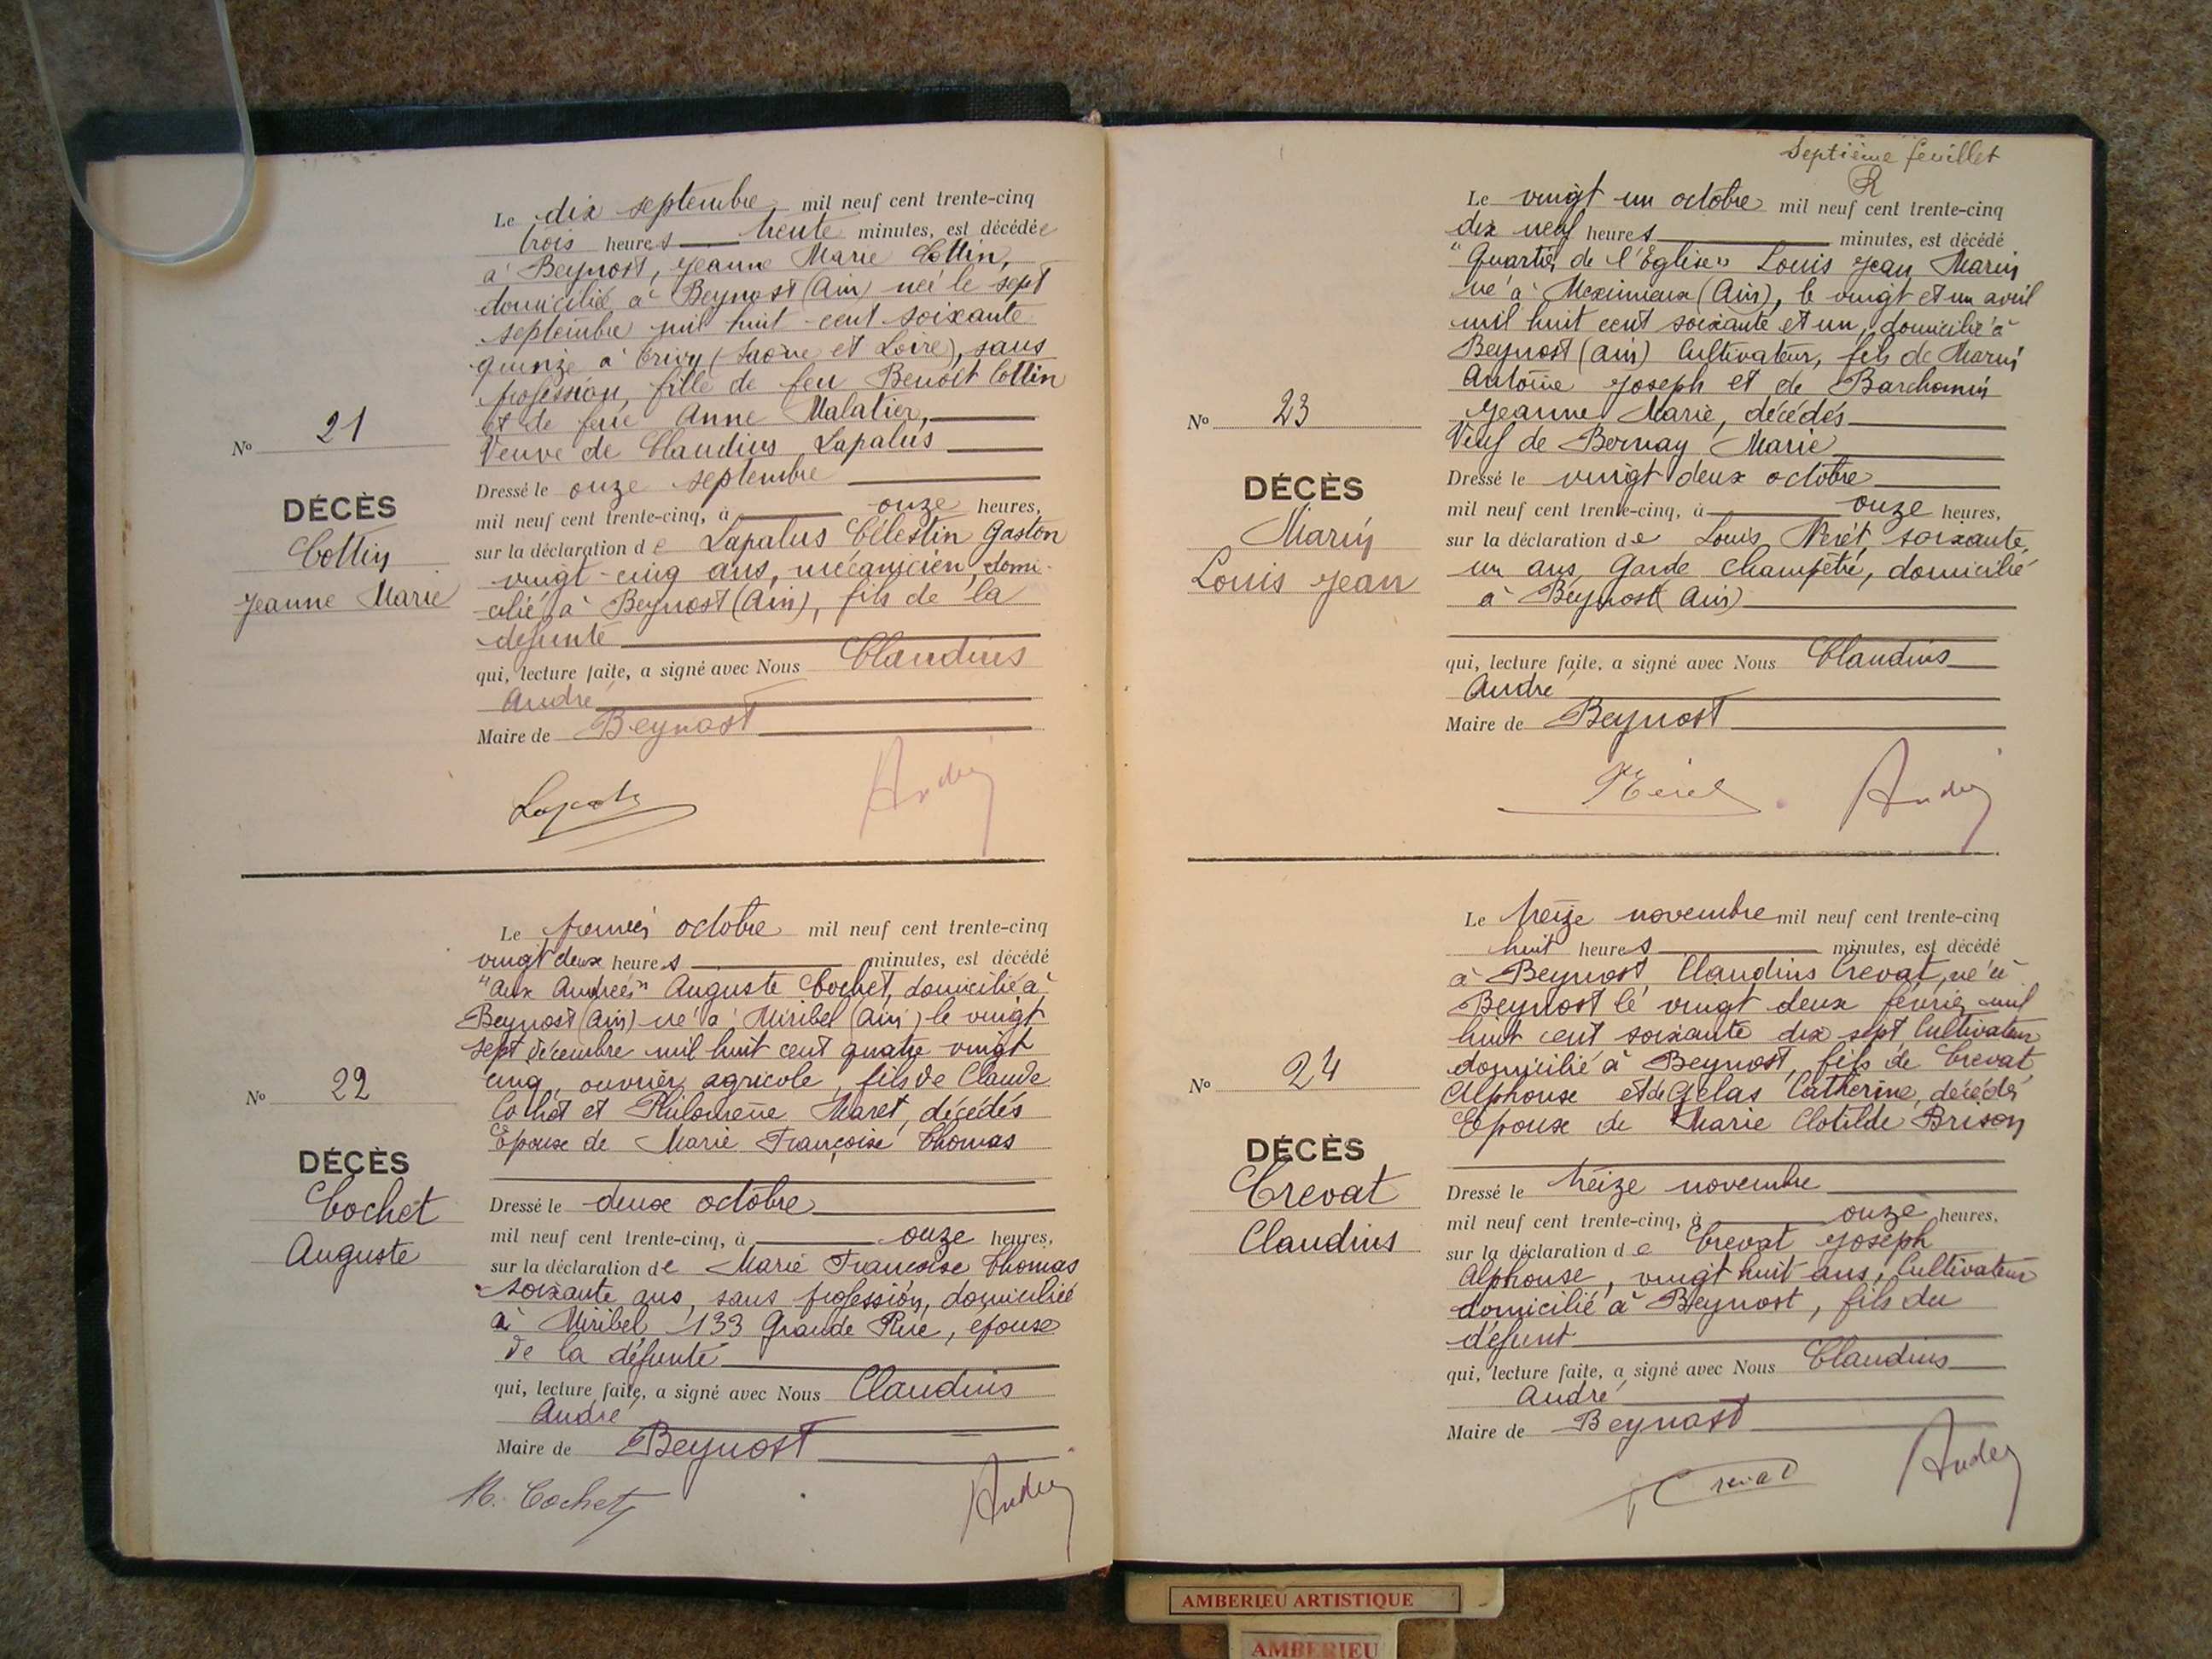 Le dix septembre mil neuf cent trente-cinq
trois heures trente minutes, est décédée
à Beynost, Jeanne Marie Cottin,
domicilié à Beynost (Ain) née le sept
septembre mil huit cent soixante
quinze à Trivy (Saône et Loire), sans
profession, fille de feu Benoît Cottin
et de feue Anne Malatier,
Veuve de Claudius Lapalus
Nº 21
DÉCÈS
Cottin
Jeanne Marie
Dressé le onze septembre
mil neuf cent trente-cinq, à onze heures,
sur la déclaration de Lapalus Célestin Gaston
vingt-cinq ans, mécanicien, domi-
cilié à Beynost (Ain), fils de la
défunte
qui, lecture faite, a signé avec Nous Claudius
André
Maire de Beynost
Le premier octobre mil neuf cent trente-cinq
vingt deux heures minutes, est décédé
"aux Andrées" Auguste Cochet, domicilié à
Beynost (Ain) né à Miribel (Ain) le vingt
sept décembre mil huit cent quatre vingt
cinq, ouvrier agricole, fils de Claude
Cochet et Philomène Maret, décédés
Epoux de Marie Françoise Thomas
Nº 22
DÉCÈS
Cochet
Auguste
Dressé le deux octobre
mil neuf cent trente-cinq, à onze heures,
sur la déclaration de Marie Françoise Thomas
soixante ans, sans profession, domiciliée
à Miribel 133 Grande Rue, épouse
de la défunte
qui, lecture faite, a signé avec Nous Claudius
André
Maire de Beynost
M. Cochet
André
Septième feuillet
Le vingt un octobre mil neuf cent trente-cinq
dix neuf heures minutes, est décédé
"Quartier de l'Eglise" Louis Jean Marin
né à Meximieux (Ain), le vingt et un avril
mil huit cent soixante et un, domicilié à
Beynost (Ain) Cultivateur, fils de Marin
Antoine Joseph et de Barchomin
Jeanne Marie, décédés
Veuf de Bernay Marie
Nº 23
DÉCÈS
Marin
Louis Jean
Dressé le vingt deux octobre
mil neuf cent trente-cinq, à onze heures,
sur la déclaration de Louis soixante
un ans, Garde Champêtre, domicilié
à Beynost (Ain)
qui, lecture faite, a signé avec Nous Claudius
André
Maire de Beynost
André
Le treize novembre mil neuf cent trente-cinq
huit heures minutes, est décédé
à Beynost Claudius Crevat, né à
Beynost le vingt deux février mil
huit cent soixante dix sept, Cultivateur
domicilié à Beynost, fils de Crevat
Alphonse et de Gelas Catherine, décédés
Epoux de Marie Clotilde Brison
Nº 24
DÉCÈS
Crevat
Claudius
Dressé le treize novembre
mil neuf cent trente-cinq, à onze heures,
sur la déclaration de Crevat Joseph
Alphonse, vingt huit ans, Cultivateur
domicilié à Beynost, fils du
défunt
qui, lecture faite, a signé avec Nous Claudius
André
Maire de Beynost
Crevat
André
AMBERIEU ARTISTIQUE
AMBERIEU